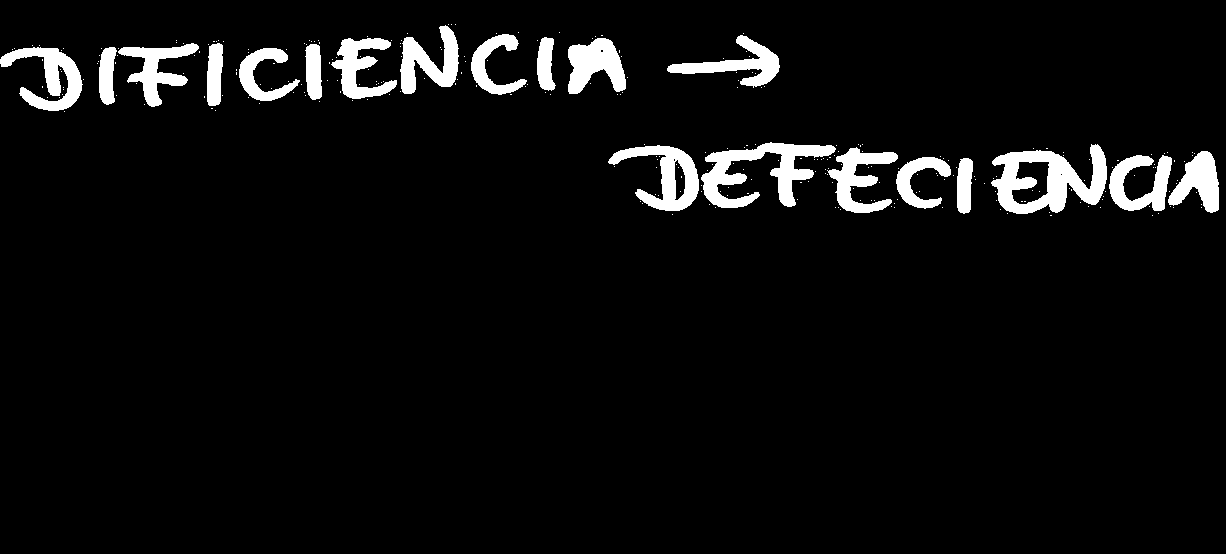 DIFICIENCIA →
DEFECIENCIA